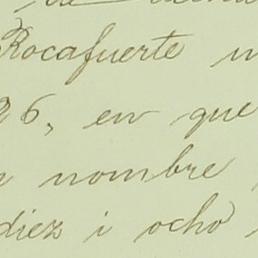 de
Rocafuerte
26, en que
nombre
diez i ocho